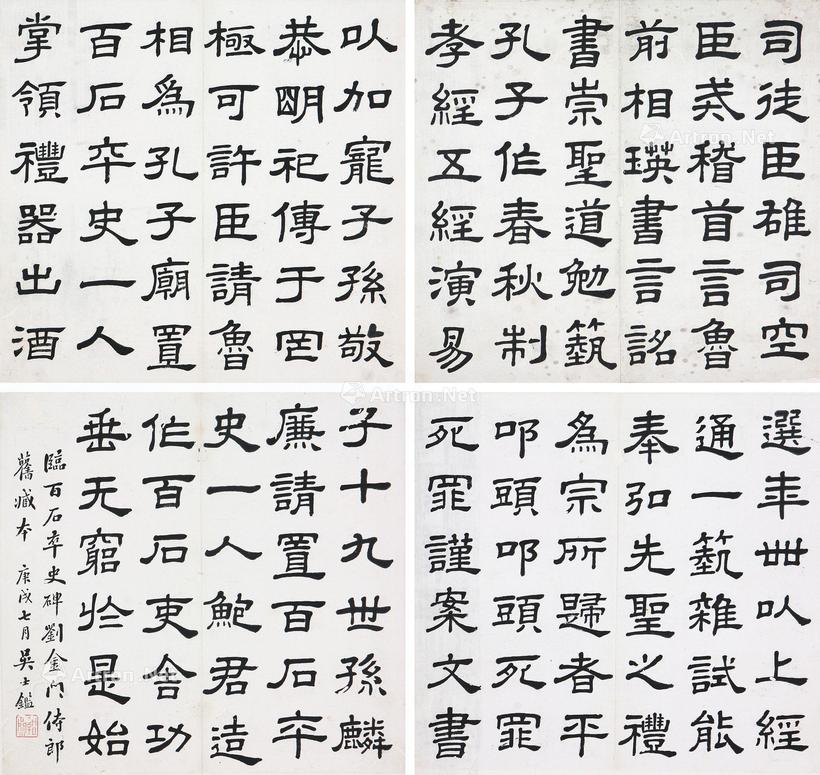 司徒臣雄司空
臣戒稽首言魯
前相瑛書言詔
書崇聖道勉藝
孔子作春秋制
孝經五經演易
以加寵子孫敬
恭明祀傳于罔
極可許臣請魯
相為孔子廟置
百石卒史一人
掌領禮器出酒
選年卌以上經
通一藝雜試能
奉弘先聖之禮
為宗所歸者平
叩頭叩頭死罪
死罪謹案文書
子十九世孫麟
廉請置百石卒
史一人鮑君造
作百石吏舍功
垂无窮於是始
臨百石卒史碑劉金門侍郎
舊藏本 庚戌七月 吳士鑑
Artron.Net
Artron.Net
Artron.Net
Artron.Net